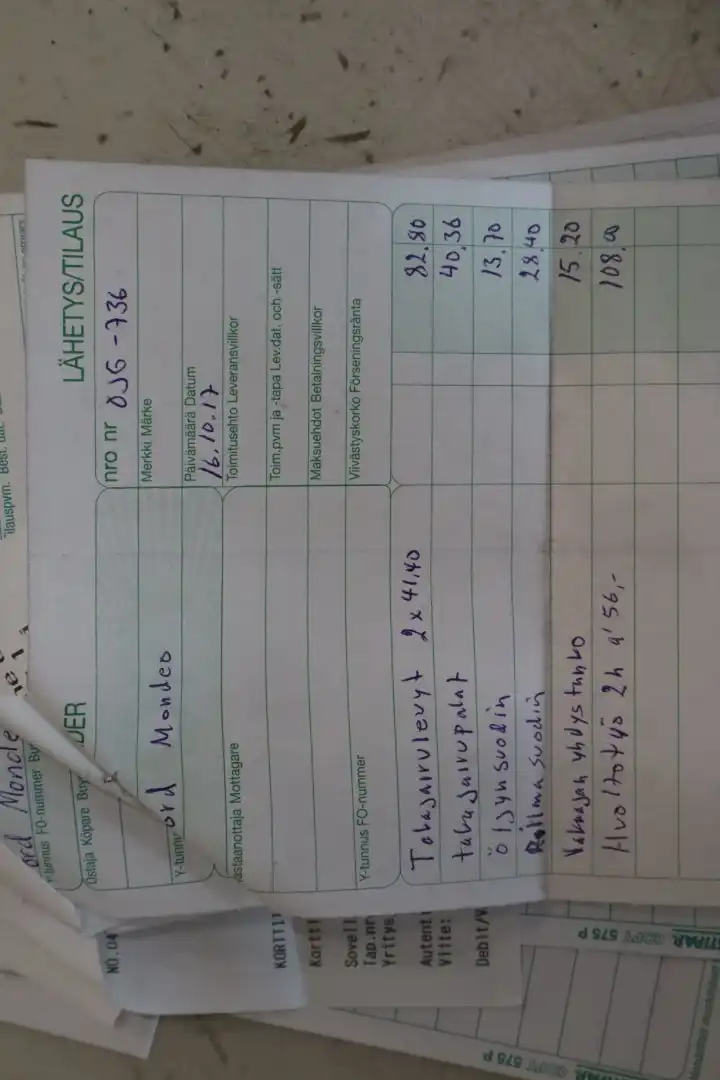 LÄHETYS/TILAUS
nro nr OJG-736
Merkki Märke
Päivämäärä Datum
16.10.17
Toimitusehto Leveransvillkor
Toim.pvm ja -tapa Lev.dat. och -sätt
Maksuehdot Betalningsvillkor
Viivästyskorko Förseningsränta
DER
Ostaja Köpare
ord Mondeo
Y-tunn
astaanottaja Mottagare
Y-tunnus FO-nummer
Takajarrulevyt 2 x 41,40 82,80
takajarrupalat 40,36
öljynsuodin 13,70
Raitisilmasuodin 28,40
Vakaajan yhdystanko 15.20
Huoltotyö 2h a' 56,- 108,00
ord Monde
tunnus FO-nummer
ilauspvm. Best. dat.
NO.04
KORTTI
Kortti
Sovell
Tap.nr
Yritys
Autent
Viite:
Debit/V
575 P
575 P